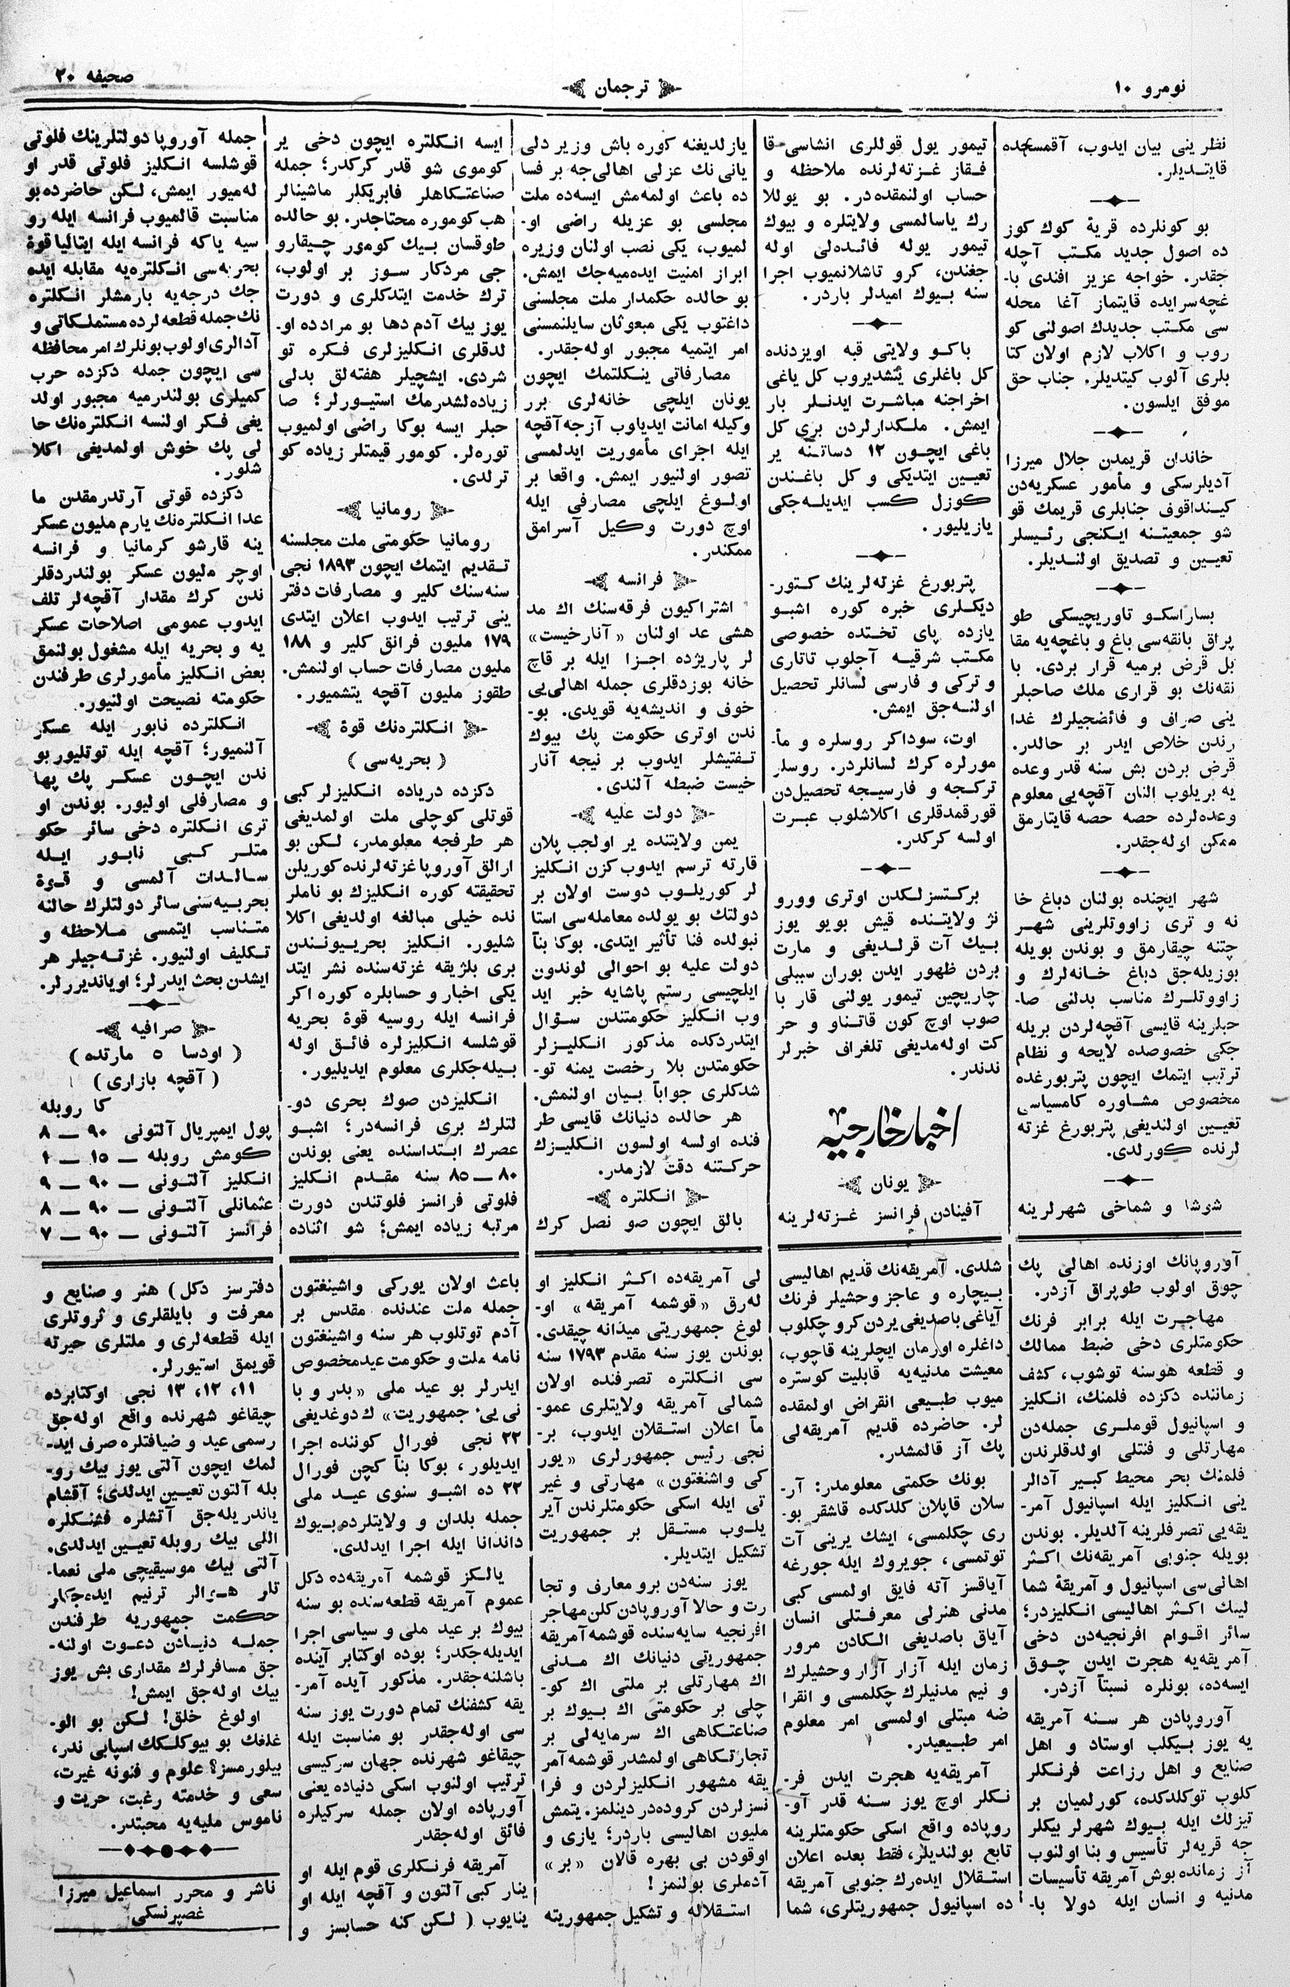 نومرو ۱۰
ترجمان
صحیفه ۲۰
نظرینی بیان ایدوب، آقمسجده
قایتدیلر.
بو كونلرده قریۀ كوك كوز
ده اصول جدید مكتب آچله
جقدر. خواجه عزیز افندی با-
غچه سرایده قایتماز آغا محله
سی مكتب جدیدك اصولنی كو
روب و اكلاب لازم اولان كتا
بلری آلوب كیتدیلر. جناب حق
موفق ایلسون.
خاندان قریمدن جلال میرزا
آدیلرسكی و مأمور عسكریه‌دن
كینداقوف جنابلری قریمك قو
شو جمعیتنه ایكنجی رئیسلر
تعیین و تصدیق اولندیلر.
بساراسكو تاوریچسكی طو
پراق بانقه‌سی باغ و باغچه‌یه مقا
بل قرض برمیه قرار بردی. با
نقه‌نك بو قراری ملك صاحبلر
ینی صراف و فائضجیلرك غدا
رندن خلاص ایدر بر حالدر.
قرض بردن بش سنه قدر وعده
یه بریلوب النان آقچه‌یی معلوم
وعده‌لرده حصه حصه قایتارمق
ممكن اوله‌جقدر.
شهر ایچنده بولنان دباغ خا
نه و تری زاووتلرینی شهر
چتنه چیقارمق و بوندن بویله
بوزیله‌جق دباغ خانه‌لرك و
زاووتلرك مناسب بدلنی صا-
حبلرینه قایسی آقچه‌لردن بریله
جكی خصوصده لایحه و نظام
ترتیب ایتمك ایچون پتربورغده
مخصوص مشاوره كامسیاسی
تعیین اولندیغی پتربورغ غزته
لرنده كورلدی.
شوشا و شماخی شهرلرینه
تیمور یول قوللری انشاسی قا
فقاز غزته‌لرنده ملاحظه و
حساب اولنمقده‌در. بو یوللا
رك یاسالمسی ولایتلره و بیوك
تیمور یوله فائده‌لی اوله
جغندن، كرو تاشلانمیوب اجرا
سنه بیوك امیدلر باردر.
باكو ولایتی قبه اویزدنده
كل باغلری یتشدیروب كل یاغی
اخراجنه مباشرت ایدنلر بار
ایمش. ملكدارلردن بری كل
باغی ایچون ۱۲ دساتنه یر
تعیین ایتدیكی و كل باغندن
كوزل كسب ایدیله‌جكی
یازیلیور.
پتربورغ غزته‌لرینك كتور-
دیكلری خبره كوره اشبو
یازده پای تختده خصوصی
مكتب شرقیه آچلوب تاتاری
و تركی و فارسی لسانلر تحصیل
اولنه‌جق ایمش.
اوت، سوداكر روسلره و مأ-
مورلره كرك لسانلردر. روسلر
تركجه و فارسیجه تحصیلدن
قورقمدقلری اكلاشلوب عبرت
اولسه كركدر.
بركتسزلكدن اوتری وورو
نژ ولایتنده قیش بویو یوز
بیك آت قرلدیغی و مارت
بردن ظهور ایدن بوران سببلی
چاریچین تیمور یولنی قار با
صوب اوچ كون قاتناو و حر
كت اوله‌مدیغی تلغراف خبرلر
ندندر.
اخبار خارجیه
یونان
آفینادن فرانسز غزته‌لرینه
یازلدیغنه كوره باش وزیر دلی
یانی‌نك عزلی اهالی‌جه بر فسا
ده باعث اولمه‌مش ایسه‌ده ملت
مجلسی بو عزیله راضی او-
لمیوب، یكی نصب اولنان وزیره
ابراز امنیت ایده‌میه‌جك ایمش.
بو حالده حكمدار ملت مجلسنی
داغتوب یكی مبعوثان سایلنمسنی
امر ایتمیه مجبور اوله‌جقدر.
مصارفاتی ینكلتمك ایچون
یونان ایلچی خانه‌لری برر
وكیله امانت ایدیاوب آزجه آقچه
ایله اجرای مأموریت ایدلمسی
تصور اولنیور ایمش. واقعا بر
اولوغ ایلچی مصارفی ایله
اوچ دورت وكیل آسرامق
ممكندر.
فرانسه
اشتراكیون فرقه‌سنك اك مد
هشی عد اولنان «آنارخیست»
لر پاریژده اجزا ایله بر قاچ
خانه بوزدقلری جمله اهالی‌یی
خوف و اندیشه‌یه قویدی. بو-
ندن اوتری حكومت پك بیوك
تفتیشلر ایدوب بر نیجه آنار
خیست ضبطه آلندی.
دولت علیه
یمن ولایتنده یر اولجب پلان
قارته ترسم ایدوب كزن انكلیز
لر كوریلوب دوست اولان بر
دولتك بو یولده معامله‌سی استا
نبولده فنا تأثیر ایتدی. بوكا بناً
دولت علیه بو احوالی لوندون
ایلچیسی رستم پاشایه خبر اید
وب انكلیز حكومتندن سؤال
ایتدركده مذكور انكلیزلر
حكومتدن بلا رخصت یمنه تو-
شدكلری جواباً بیان اولنمش.
هر حالده دنیانك قایسی طر
فنده اولسه اولسون انكلیزك
حركتنه دقت لازمدر.
انكلتره
بالق ایچون صو نصل كرك
ایسه انكلتره ایچون دخی یر
كوموی شو قدر كركدر؛ جمله
صناعتكاهلر فابریكلر ماشینالر
هب كوموره محتاجدر. بو حالده
طوقسان بیك كومور چیقارو
جی مردكار سوز بر اولوب،
ترك خدمت ایتدكلری و دورت
یوز بیك آدم دها بو مراده او-
لدقلری انكلیزلری فكره تو
شردی. ایشچیلر هفته‌لق بدلی
زیاده‌لشدرمك استیورلر؛ صا
حبلر ایسه بوكا راضی اولمیوب
توره‌لر. كومور قیمتلر زیاده كو
ترلدی.
رومانیا
رومانیا حكومتی ملت مجلسنه
تقدیم ایتمك ایچون ۱۸۹۳ نجی
سنه‌سنك كلیر و مصارفات دفتر
ینی ترتیب ایدوب اعلان ایتدی
۱۷۹ ملیون فرانق كلیر و ۱۸۸
ملیون مصارفات حساب اولنمش.
طقوز ملیون آقچه یتشمیور.
انكلتره‌نك قوۀ
( بحریه‌سی )
دكزده دریاده انكلیزلر كبی
قوتلی كوچلی ملت اولمدیغی
هر طرفجه معلومدر، لكن بو
ارالق آوروپا غزته‌لرنده كوریلن
تحقیقته كوره انكلیزك بو ناملر
نده خیلی مبالغه اولدیغی اكلا
شلیور. انكلیز بحریونندن
بری بلژیقه غزته‌سنده نشر ایتد
یكی اخبار و حسابلره كوره اكر
فرانسه ایله روسیه قوۀ بحریه
قوشلسه انكلیزلره فائق اوله
بیله‌جكلری معلوم ایدیلیور.
انكلیزدن صوك بحری دو-
لتلرك بری فرانسه‌در؛ اشبو
عصرك ابتداسنده یعنی بوندن
۸۰ — ۸۵ سنه مقدم انكلیز
فلوتی فرانسز فلوتندن دورت
مرتبه زیاده ایمش؛ شو اثناده
جمله آوروپا دولتلرینك فلوتی
قوشلسه انكلیز فلوتی قدر او
له‌میور ایمش، لكن حاضرده بو
مناسبت قالمیوب فرانسه ایله رو
سیه یاكه فرانسه ایله ایتالیا قوۀ
بحریه‌سی انكلتره‌یه مقابله ایده
جك درجه‌یه بارمشلر انكلتره
نك جمله قطعه‌لرده مستملكاتی و
آدالری اولوب بونلرك امر محافظه
سی ایچون جمله دكزده حرب
كمیلری بولندرمیه مجبور اولد
یغی فكر اولنسه انكلتره‌نك حا
لی پك خوش اولمدیغی اكلا
شلور.
دكزده قوتی آرتدرمقدن ما
عدا انكلتره‌نك یارم ملیون عسكر
ینه قارشو كرمانیا و فرانسه
اوچر ملیون عسكر بولندردقلر
ندن كرك مقدار آقچه‌لر تلف
ایدوب عمومی اصلاحات عسكر
یه و بحریه ایله مشغول بولنمق
بعض انكلیز مأمورلری طرفندن
حكومته نصیحت اولنیور.
انكلترده نابور ایله عسكر
آلنمیور؛ آقچه ایله توتلیور بو
ندن ایچون عسكر پك پها
و مصارفلی اولیور. بوندن او
تری انكلتره دخی سائر حكو
متلر كبی نابور ایله
سالدات آلمسی و قوۀ
بحریه‌سنی سائر دولتلرك حالنه
متناسب ایتمسی ملاحظه و
تكلیف اولنیور. غزته‌جیلر هر
ایشدن بحث ایدرلر؛ اویاندیررلر.
صرافیه
( اودسا ۵ مارتده )
( آقچه بازاری )
كا روبله
پول ایمپریال آلتونی ۹۰ — ۸
كومش روبله — ۱۵ — ۱
انكلیز آلتونی — ۹۰ — ۹
عثمانلی آلتونی — ۹۰ — ۸
فرانسز آلتونی — ۹۰ — ۷
آوروپانك اوزنده اهالی پك
چوق اولوب طوپراق آزدر.
مهاجرت ایله برابر فرنك
حكومتلری دخی ضبط ممالك
و قطعه هوسنه توشوب، كشف
زماننده دكزده فلمنك، انكلیز
و اسپانیول قوملری جمله‌دن
مهارتلی و فنتلی اولدقلرندن
فلمنك بحر محیط كبیر آدالر
ینی انكلیز ایله اسپانیول آمر-
یقه‌یی تصرفلرینه آلدیلر. بوندن
بویله جنوبی آمریقه‌نك اكثر
اهالی‌سی اسپانیول و آمریقۀ شما
لینك اكثر اهالیسی انكلیزدر؛
سائر اقوام افرنجیه‌دن دخی
آمریقه‌یه هجرت ایدن چوق
ایسه‌ده، بونلره نسبتاً آزدر.
آوروپادن هر سنه آمریقه
یه یوز بیكلب اوستاد و اهل
صنایع و اهل رزاعت فرنكلر
كلوب توكلدكده، كورلمیان بر
تیزلك ایله بیوك شهرلر بیكلر
جه قریه‌لر تأسیس و بنا اولنوب
آز زمانده بوش آمریقه تأسیسات
مدنیه و انسان ایله دولا با-
شلدی. آمریقه‌نك قدیم اهالیسی
بیچاره و عاجز وحشیلر فرنك
آیاغی باصدیغی یردن كرو چكلوب
داغلره اورمان ایچلرینه قاچوب،
معیشت مدنیه‌یه قابلیت كوستره
میوب طبیعی انقراض اولمقده
لر. حاضرده قدیم آمریقه‌لی
پك آز قالمشدر.
بونك حكمتی معلومدر: آر-
سلان قاپلان كلدكده قاشقر بو-
ری چكلمسی، ایشك یرینی آت
توتمسی، جویروك ایله جورغه
آیاقسز آته فایق اولمسی كبی
مدنی هنرلی معرفتلی انسان
آیاق باصدیغی الكادن مرور
زمان ایله آزار آزار وحشیلرك
و نیم مدنیلرك چكلمسی و انقرا
ضه مبتلی اولمسی امر معلوم
امر طبیعیدر.
آمریقه‌یه هجرت ایدن فر-
نكلر اوچ یوز سنه قدر آو-
روپاده واقع اسكی حكومتلرینه
تابع بولندیلر، فقط بعده اعلان
استقلال ایده‌رك جنوبی آمریقه
ده اسپانیول جمهوریتلری، شما
لی آمریقه‌ده اكثر انكلیز او
له‌رق «قوشمه آمریقه» او-
لوغ جمهوریتی میدانه چیقدی.
بوندن یوز سنه مقدم ۱۷۹۳ سنه
سی انكلتره تصرفنده اولان
شمالی آمریقه ولایتلری عمو-
ماً اعلان استقلال ایدوب، بر-
نجی رئیس جمهورلری «یور
كی واشنغتون» مهارتی و غیر
تی ایله اسكی حكومتلرندن آیر
یلوب مستقل بر جمهوریت
تشكیل ایتدیلر.
یوز سنه‌دن برو معارف و تجا
رت و حالا آوروپادن كلن مهاجر
افرنجیه سایه‌سنده قوشمه آمریقه
جمهوریتی دنیانك اك مدنی
اك مهارتلی بر ملتی اك كو-
چلی بر حكومتی اك بیوك بر
صناعتكاهی اك سرمایه‌لی بر
تجارتكاهی اولمشدر قوشمه آمر
یقه مشهور انكلیزلردن و فرا
نسزلردن كروده‌در دینلمز. یتمش
ملیون اهالیسی باردر؛ یازی و
اوقودن بی بهره قالان «بر»
آدملری بولنمز!
استقلاله و تشكیل جمهوریته
باعث اولان یوركی واشینغتون
جمله ملت عندنده مقدس بر
آدم توتلوب هر سنه واشینغتون
نامه ملت و حكومت عید مخصوص
ایدرلر بو عید ملی «پدر و با
نی‌یی جمهوریت» ك دوغدیغی
۲۲ نجی فورال كوننده اجرا
ایدیلور، بوكا بناً كچن فورال
۲۲ ده اشبو سنوی عید ملی
جمله بلدان و ولایتلرده بیوك
داندانا ایله اجرا ایدلدی.
یالكز قوشمه آمریقه‌ده دكل
عموم آمریقه قطعه‌سنده بو سنه
بیوك بر عید ملی و سیاسی اجرا
ایدیله‌جكدر؛ بوده اوكتابر آینده
باشلنه‌جقدر. مذكور آیده آمر-
یقه كشفنك تمام دورت یوز سنه
سی اوله‌جقدر بو مناسبت ایله
چیقاغو شهرنده جهان سركیسی
ترتیب اولنوب اسكی دنیاده یعنی
آورپاده اولان جمله سركیلره
فائق اوله‌جقدر
آمریقه فرنكلری قوم ایله او
ینار كبی آلتون و آقچه ایله او
ینایوب ( لكن كنه حسابسز و
دفترسز دكل) هنر و صنایع و
معرفت و بایلقلری و ثروتلری
ایله قطعه‌لری و ملتلری حیرته
قویمق استیورلر.
۱۱، ۱۲، ۱۳ نجی اوكتابرده
چیقاغو شهرنده واقع اوله‌جق
رسمی عید و ضیافتلره صرف اید-
لمك ایچون آلتی یوز بیك رو-
بله آلتون تعیین ایدلدی؛ آقشام
یاندیریله‌جق آتشلره فشنكلره
اللی بیك روبله تعیین ایدلدی.
آلتی بیك موسیقیچی ملی نغما-
تلر هوالر ترنیم ایده‌جكلر
حكمت جمهوریه طرفندن
جمله دنیادن دعوت اولنه-
جق مسافرلرك مقداری بش یوز
بیك اوله‌جق ایمش!
اولوغ خلق! لكن بو الو-
غلغك بو بیوكلكك اسبابی ندر،
بیلورمسز؟ علوم و فنونه غیرت،
سعی و خدمته رغبت، حریت و
ناموس ملیه‌یه محبتدر.
ناشر و محرر اسماعیل میرزا
غصپرنسكی